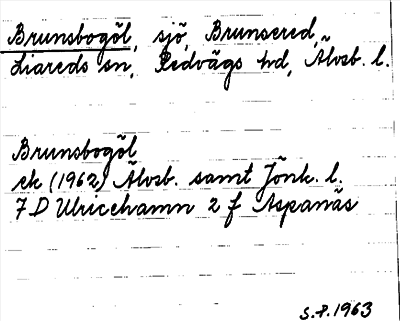 Brunsbogöl, sjö, Brunsered,
Liareds sn, Redvägs hd, Älvsb. l.
Brunsbogöl
ek (1962) Älvsb. samt Jönk. l.
7 D Ulricehamn 2 f Aspanäs
S.P. 1963